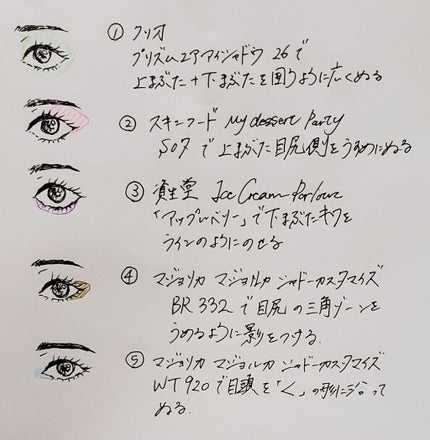 ① クリオ
プリズムエアアイシャドウ 26で
上まぶた+下まぶたを囲うように広くぬる
② スキンフード My dessert Party
S07 で上まぶた目尻側をうすめにぬる
③ 資生堂 Ice Cream Parlour
「アップルベリー」で下まぶたキワを
ラインのようにのせる
④ マジョリカ マジョルカ シャドーカスタマイズ
BR332 で目尻の三角ゾーンを
うめるように影をつける.
⑤ マジョリカ マジョルカ シャドーカスタマイズ
WT920で目頭を「く」の形に沿って
ぬる.